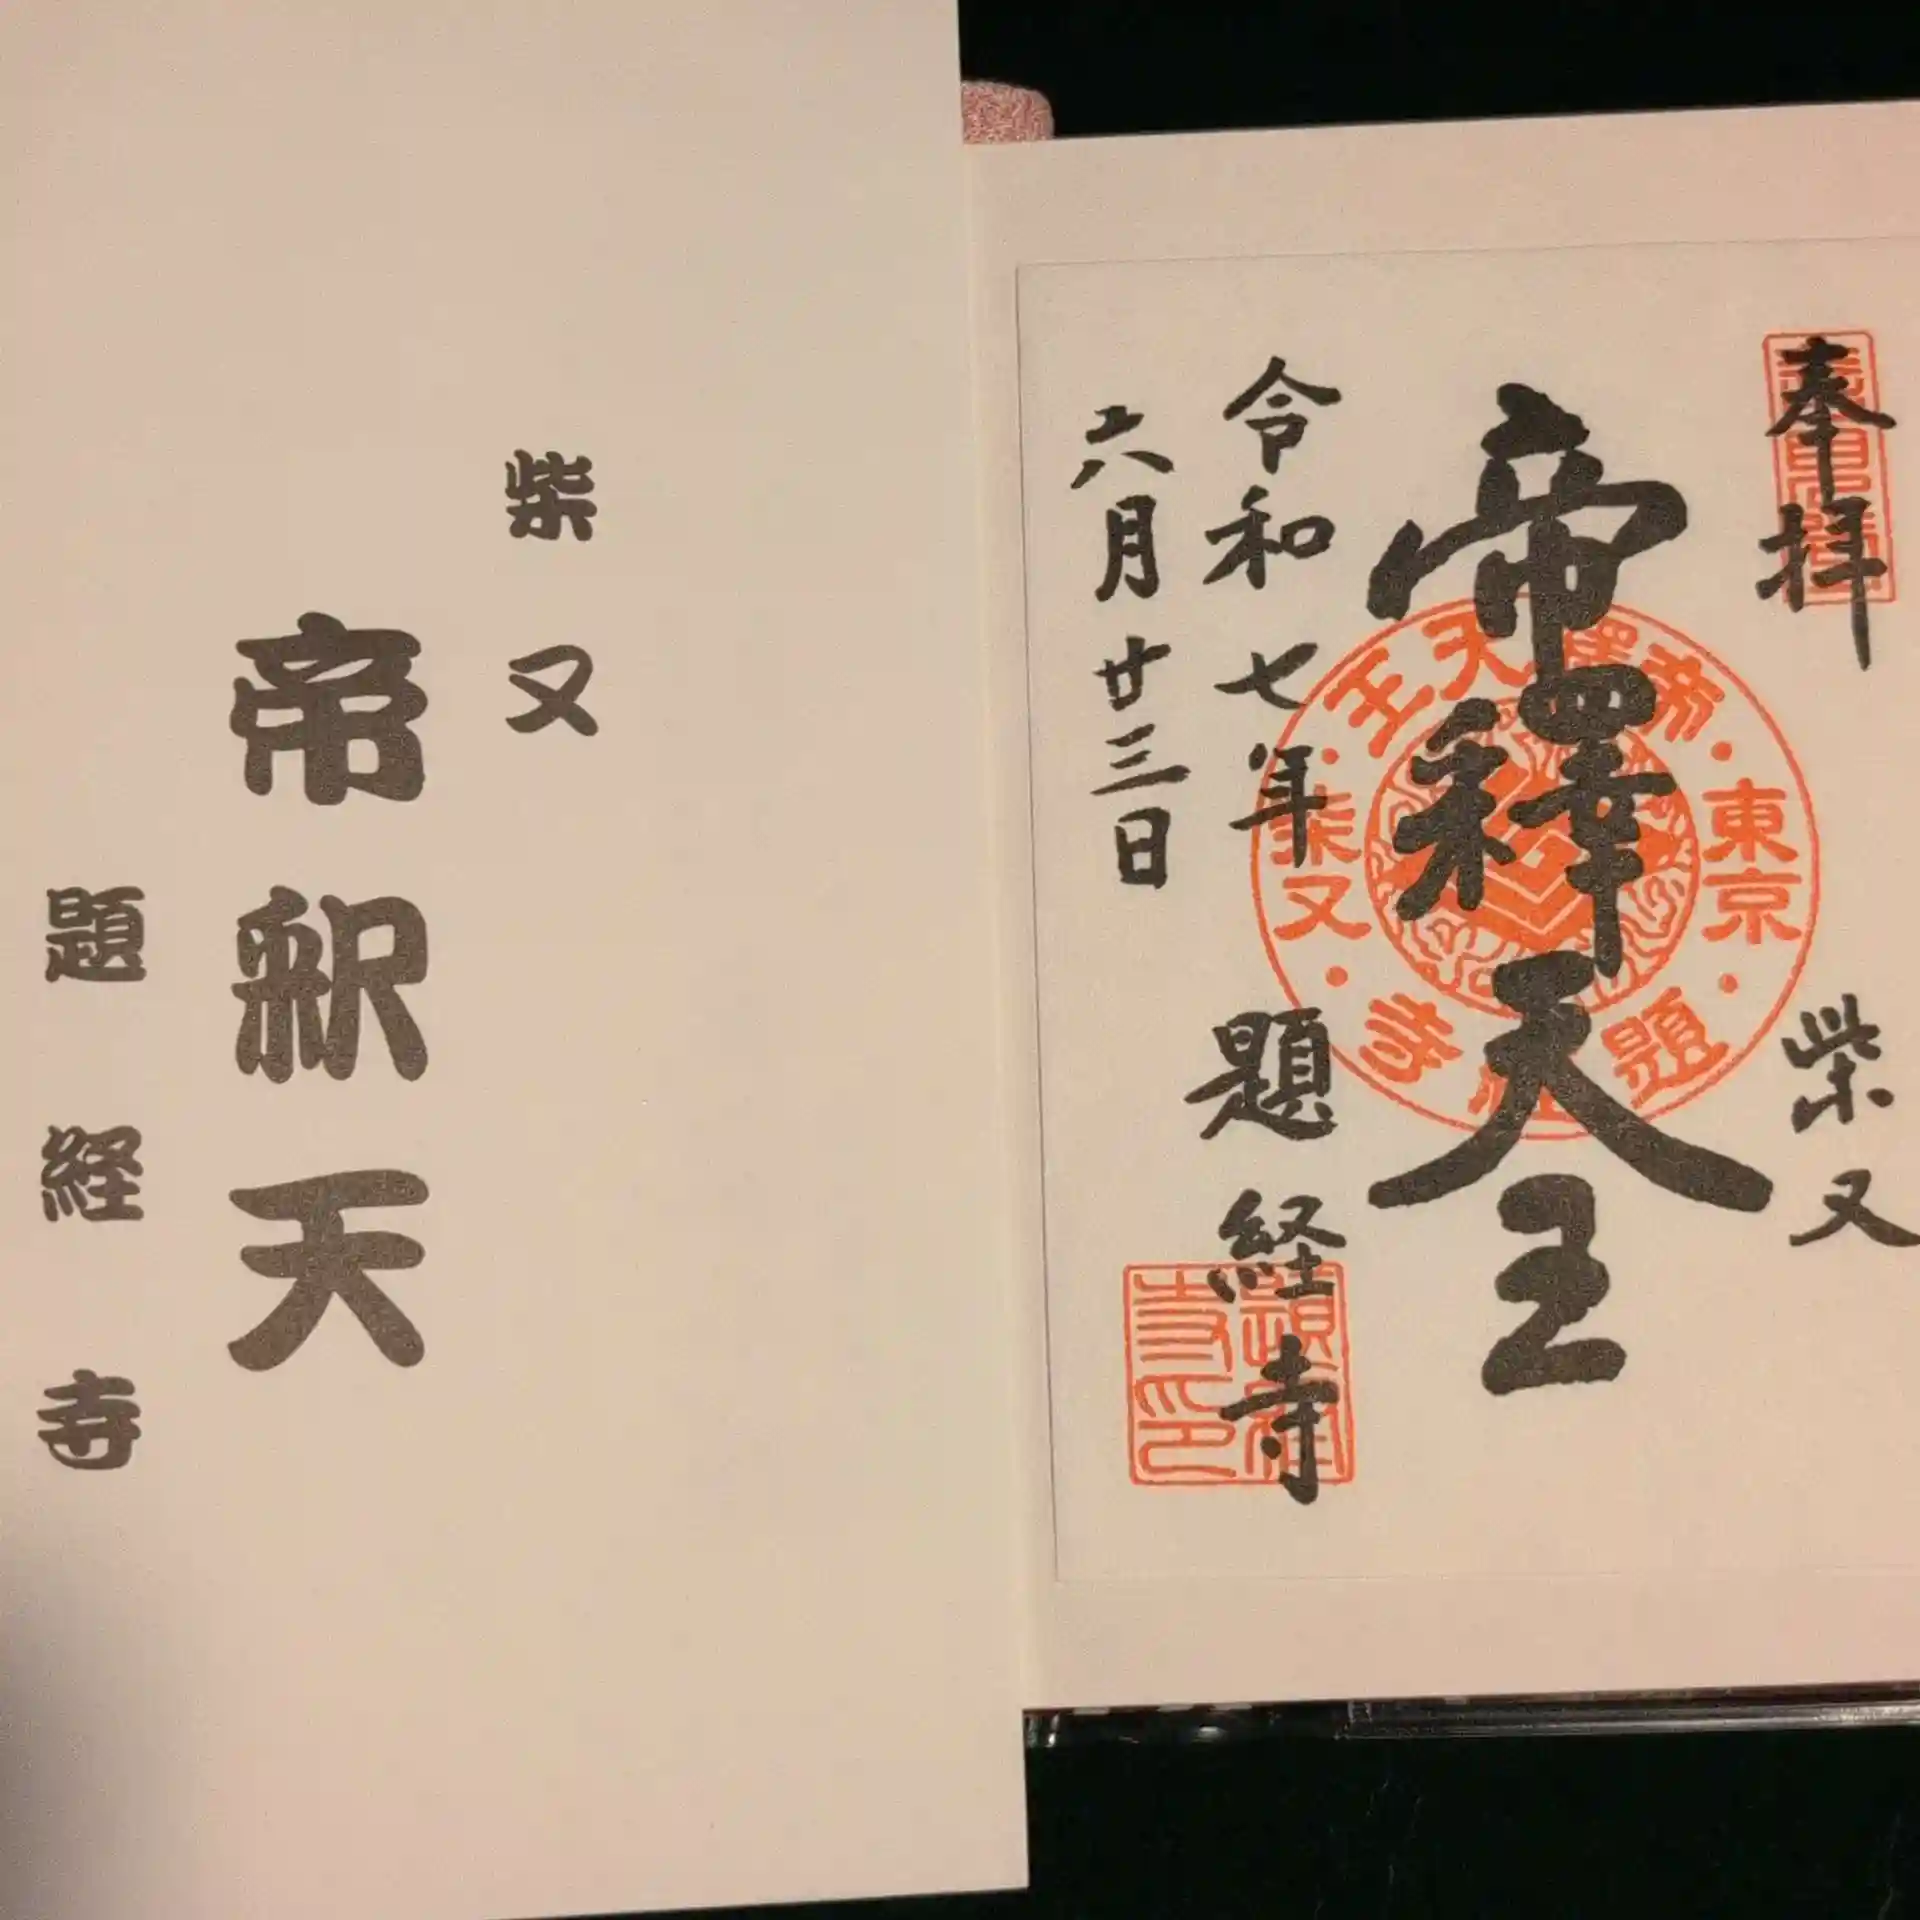 柴又
帝釈天
題経寺
奉拝
柴又
帝釋天王
令和七年
六月廿三日
題経寺
東京
帝釋天王
柴又
題経寺
題経寺印